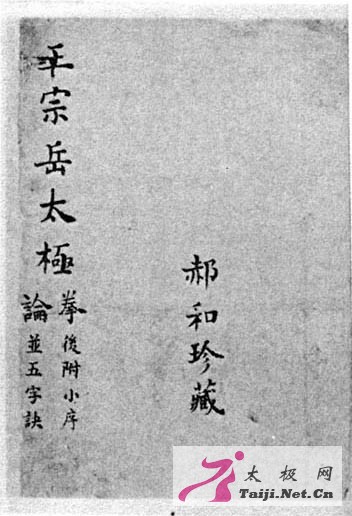 郝和珍藏
王宗岳太極
拳後附小序
論並五字訣
太极网
Taiji.Net.Cn